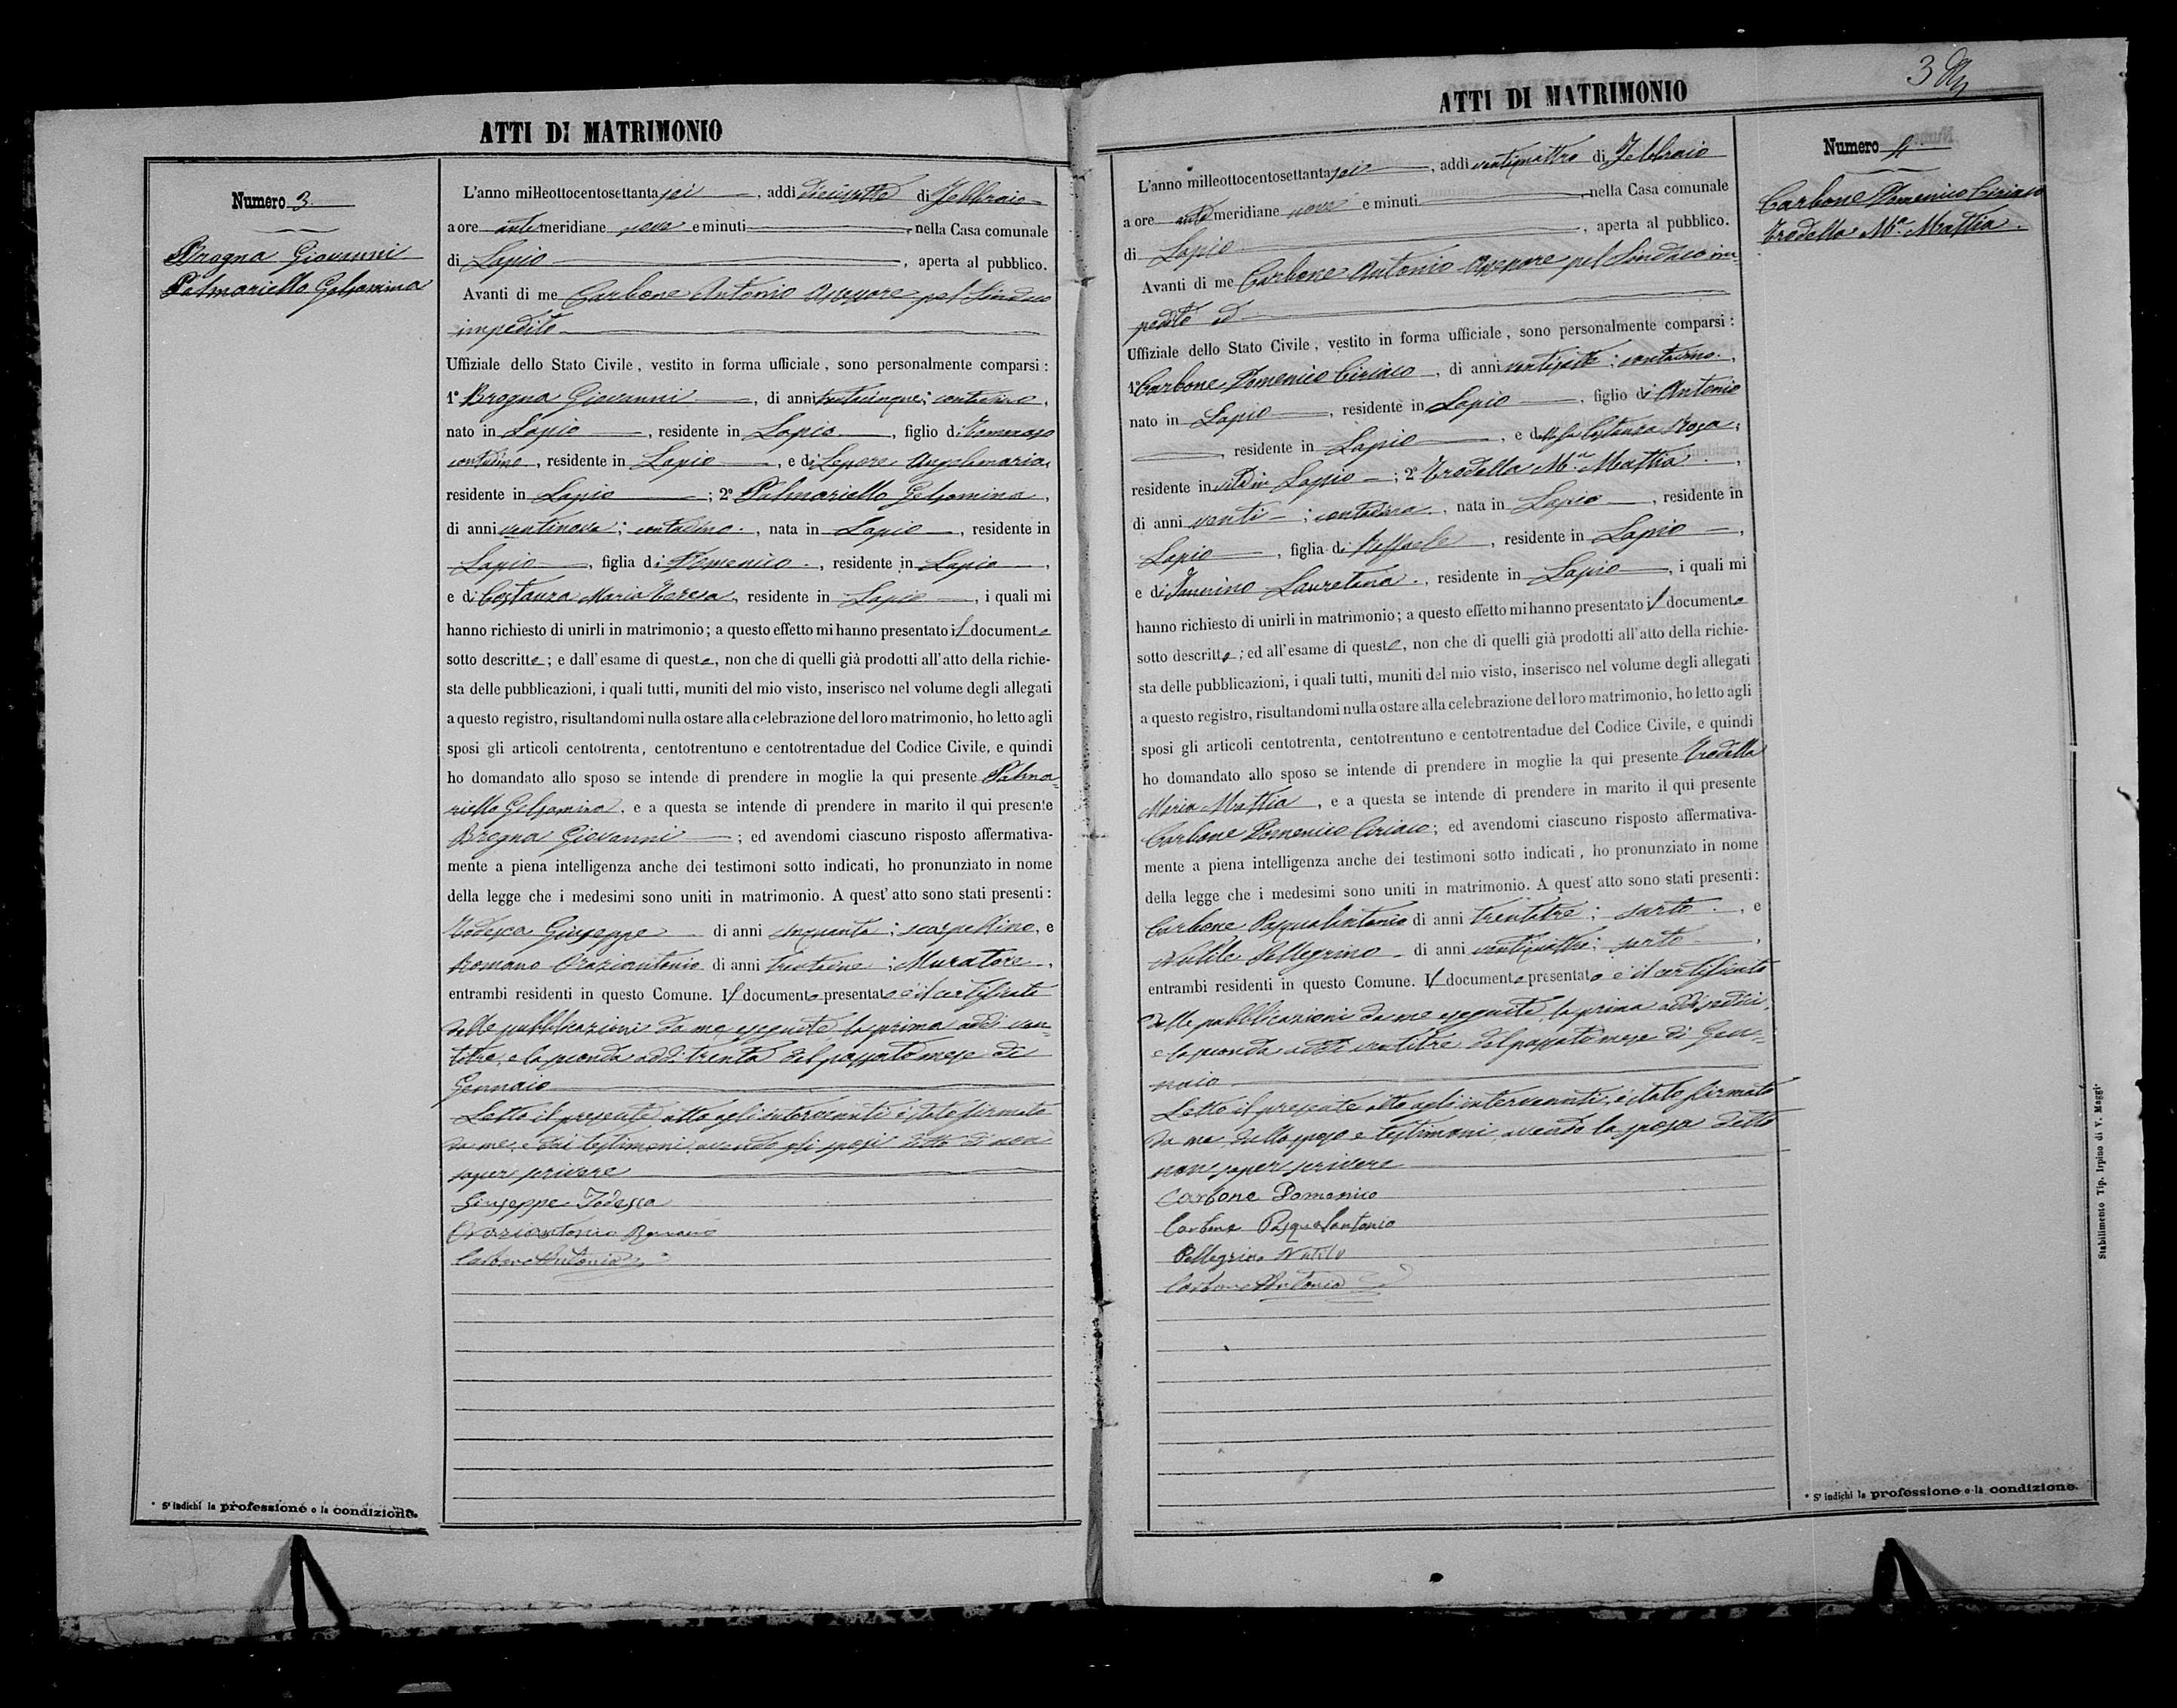 ATTI DI MATRIMONIO
Numero 3.
Brogna Giovanni
Palmariello Gelsomina
L'anno milleottocentosettantasei, addì diecisette di Febbraio
a ore antimeridiane nove e minuti , nella Casa comunale
di Lapio , aperta al pubblico.
Avanti di me Carbone Antonio Assessore pel Sindaco
impedito
Uffiziale dello Stato Civile, vestito in forma ufficiale, sono personalmente comparsi:
1° Brogna Giovanni , di anni trentacinque; contadino,
nato in Lapio , residente in Lapio , figlio di Tommaso
contadino, residente in Lapio , e di Lepore Angelamaria,
residente in Lapio ; 2° Palmariello Gelsomina,
di anni ventinove; contadina, nata in Lapio , residente in
Lapio , figlia di Domenico, residente in Lapio ,
e di Costanza Maria Teresa, residente in Lapio , i quali mi
hanno richiesto di unirli in matrimonio; a questo effetto mi hanno presentato il documento
sotto descritto; e dall'esame di questo, non che di quelli già prodotti all'atto della richie-
sta delle pubblicazioni, i quali tutti, muniti del mio visto, inserisco nel volume degli allegati
a questo registro, risultandomi nulla ostare alla celebrazione del loro matrimonio, ho letto agli
sposi gli articoli centotrenta, centotrentuno e centotrentadue del Codice Civile, e quindi
ho domandato allo sposo se intende di prendere in moglie la qui presente Palma=
riello Gelsomina, e a questa se intende di prendere in marito il qui presente
Brogna Giovanni ; ed avendomi ciascuno risposto affermativa-
mente a piena intelligenza anche dei testimoni sotto indicati, ho pronunziato in nome
della legge che i medesimi sono uniti in matrimonio. A quest'atto sono stati presenti:
Todesca Giuseppe di anni cinquanta; scarpellino, e
Romano Oraziantonio di anni ; Muratore,
entrambi residenti in questo Comune. Il documento presentato è il certificato
delle pubblicazioni da me eseguite la prima addì ven=
titre, e la seconda addì trenta del passato mese di
Gennaio
Letto il presente atto agli intervenuti è stato firmato
da me, e dai testimoni, avendo gli sposi detto di non
sapere scrivere
Giuseppe Todesca
Oraziantonio Romano
Carbone Antonio
* S'indichi la professione o la condizione.
ATTI DI MATRIMONIO
3
Numero 4
Carbone Domenico Ciriaco
Trodella M.a Mattia.
L'anno milleottocentosettantasei , addì ventiquattro di Febbraio
a ore antimeridiane nove e minuti , nella Casa comunale
di Lapio , aperta al pubblico.
Avanti di me Carbone Antonio Assessore pel Sindaco im=
pedito ed
Uffiziale dello Stato Civile, vestito in forma ufficiale, sono personalmente comparsi:
1° Carbone Domenico Ciriaco , di anni ventisette; contadino,
nato in Lapio , residente in Lapio , figlio di Antonio
, residente in Lapio , e della fu Costanza Rosa;
residente in vita in Lapio ; 2° Trodella M.a Mattia ,
di anni venti ; contadina, nata in Lapio , residente in
Lapio , figlia di Raffaele , residente in Lapio ,
e di Lauretana, residente in Lapio , i quali mi
hanno richiesto di unirli in matrimonio; a questo effetto mi hanno presentato il documento
sotto descritto; ed all'esame di questo, non che di quelli già prodotti all'atto della richie-
sta delle pubblicazioni, i quali tutti, muniti del mio visto, inserisco nel volume degli allegati
a questo registro, risultandomi nulla ostare alla celebrazione del loro matrimonio, ho letto agli
sposi gli articoli centotrenta, centotrentuno e centotrentadue del Codice Civile, e quindi
ho domandato allo sposo se intende di prendere in moglie la qui presente Trodella
Maria Mattia , e a questa se intende di prendere in marito il qui presente
Carbone Domenico Ciriaco; ed avendomi ciascuno risposto affermativa-
mente a piena intelligenza anche dei testimoni sotto indicati, ho pronunziato in nome
della legge che i medesimi sono uniti in matrimonio. A quest'atto sono stati presenti:
Carbone Pasqualantonio di anni trentatre; sarto , e
Nutile Pellegrino di anni ventiquattro; sarto ,
entrambi residenti in questo Comune. Il documento presentato è il certificato
delle pubblicazioni da me eseguite, la prima addì sedici,
e la seconda addì ventitre del passato mese di Gen=
naio
Letto il presente atto agli intervenuti, è stato firmato
da me dallo sposo e testimoni, avendo la sposa detto
non sapere scrivere
Carbone Domenico
Carbone Pasqualantonio
Pellegrino Nutile
Carbone Antonio
* S'indichi la professione o la condizione.
Stabilimento Tip. Irpino di V. Maggi